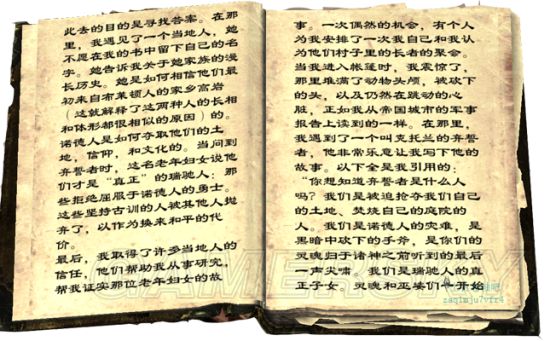 此去的目的是寻找答案。在那
里，我遇见了一个当地人，她
不愿在我的书中留下自己的名
字。她告诉我关于她家族的漫
长历史。她是如何相信他们最
初来自布莱顿人的家乡高岩
（这就解释了这两种人的长相
和体形都很相似的原因）的。
诺德人是如何夺取他们的土
地，信仰，和文化的。当问到
弃誓者时，这名老年妇女说他
们才是“真正”的瑞驰人：那
些拒绝屈服于诺德人的勇士。
这些坚持古训的人被其他人抛
弃了，以作为换来和平的代
价。
最后，我取得了许多当地人的
信任，他们帮助我从事研究，
帮我证实那位老年妇女的故
事。一次偶然的机会，有个人
为我安排了一次我自己和我认
为他们村子里的长者的聚会。
当我进入帐篷时，我震惊了，
那里堆满了动物头颅，被砍下
的头，以及仍然在跳动的心
脏，正如我从帝国城市的军事
报告上读到的一样。在那里，
我遇到了一个叫克托兰的弃誓
者，他非常乐意让我写下他的
故事。以下全是我引用的：
“你想知道弃誓者是什么人
吗？我们是被迫抢夺我们自己
的土地、焚烧自己的庭院的
人。我们是诺德人的灾难，是
黑暗中砍下的手斧，是你们的
灵魂归于诸神之前听到的最后
一声尖啸。我们是瑞驰人的真
正子女。灵魂和巫婆们一开始
GAMERSKY
zaqimju7vfr4